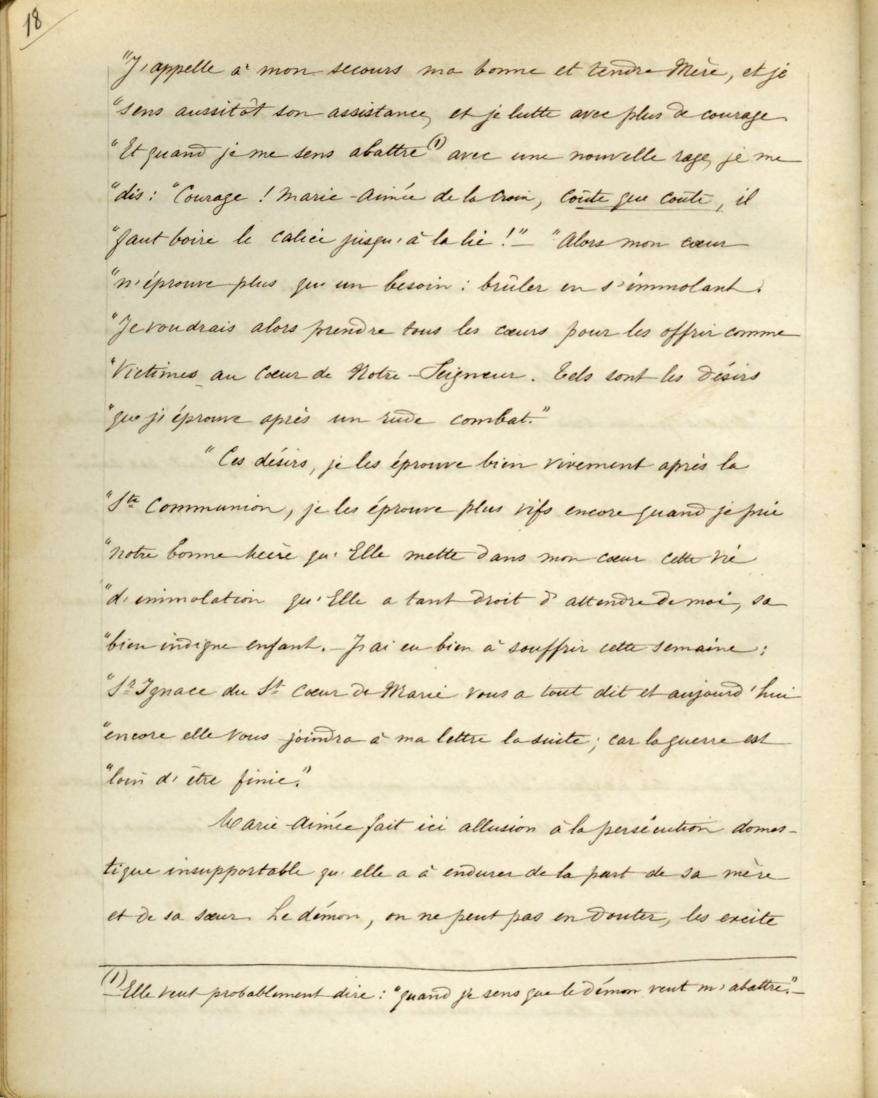 18
"J'appelle à mon secours ma bonne et tendre Mère, et je
"sens aussitôt son assistance, et je lutte avec plus de courage.
"Et quand je me sens abattre (1) avec une nouvelle rage, je me
"dis: "Courage! Marie-Aimée de la Croix, coûte que coûte, il
"faut boire le calice jusqu'à la lie!" – "Alors mon cœur
"n'éprouve plus qu'un besoin: brûler en s'immolant.
"Je voudrais alors prendre tous les cœurs pour les offrir comme
"Victimes au Cœur de Notre-Seigneur. Tels sont les désirs
"que j'éprouve après un rude combat."
"Ces désirs, je les éprouve bien vivement après la
"Ste Communion, je les éprouve plus vifs encore quand je prie
"notre bonne Mère qu'Elle mette dans mon cœur cette vie
"d'immolation qu'Elle a tant droit d'attendre de moi, sa
"bien indigne enfant. – J'ai eu bien à souffrir cette semaine:
"Sr Ignace du St Cœur de Marie vous a tout dit et aujourd'hui
"encore elle vous joindra à ma lettre la suite; car la guerre est
"loin d'être finie."
Marie-Aimée fait ici allusion à la persécution domes-
tique insupportable qu'elle a à endurer de la part de sa mère
et de sa sœur. Le démon, on ne peut pas en douter, les excite
(1) Elle veut probablement dire: "quand je sens que le démon veut m'abattre." –